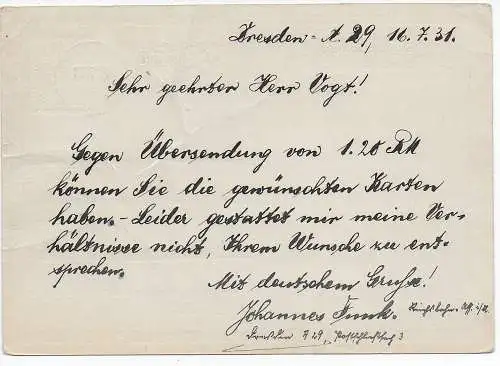 Dresden - A. 29, 16.7.31.
Sehr geehrter Herr Vogt!
Gegen Übersendung von 1.20 RM
können Sie die gewünschten Karten
haben. - Leider gestattet mir meine Ver-
hältnisse nicht, Ihrem Wunsche zu ent-
sprechen.
Mit deutschem Grusse!
Johannes Funk.
Dresden A 29, Postschliessfach 3